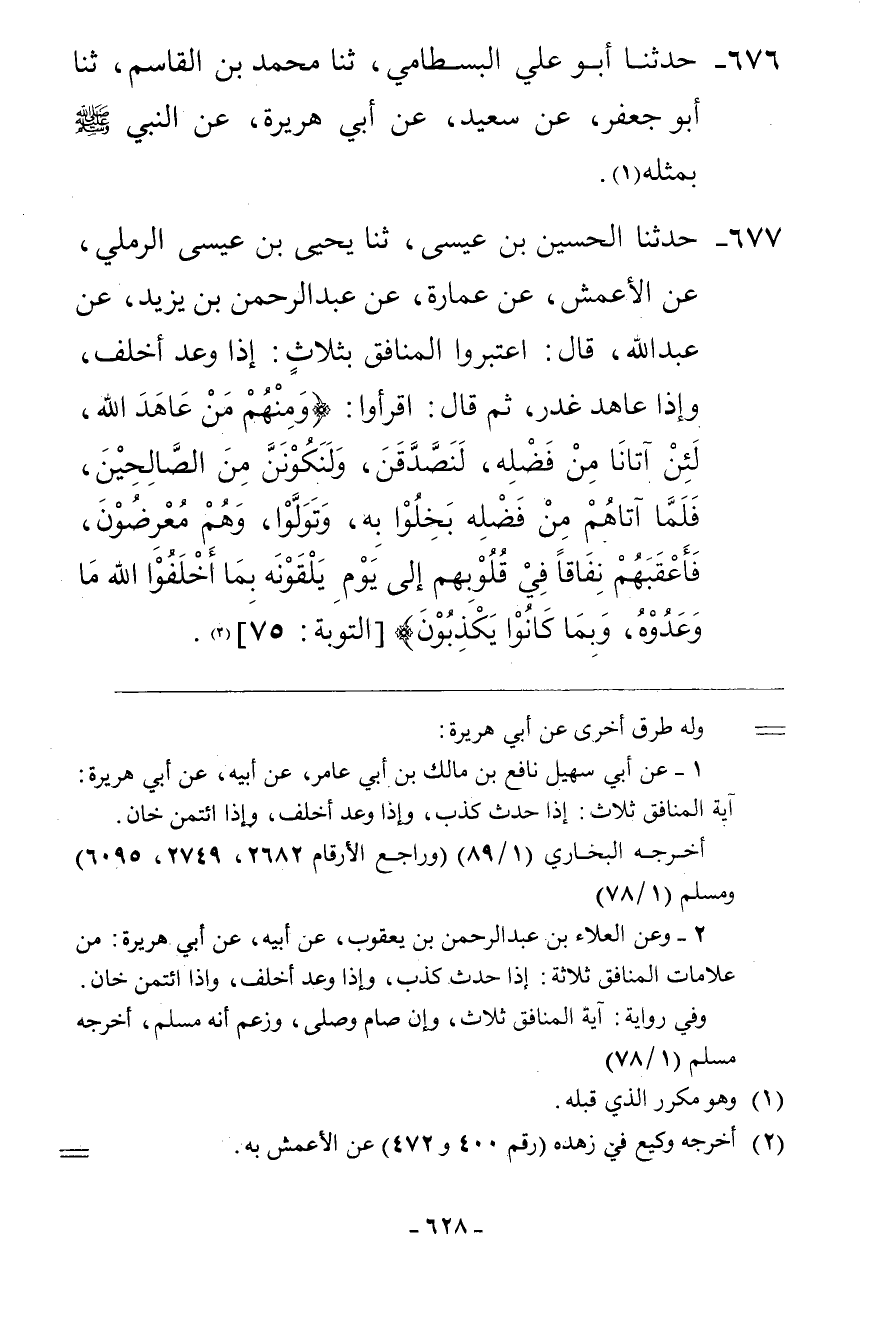 ٦٧٦ـ حدثنـا أبـو علي البسـطامي، ثنا محمد بن القاسم، ثنا
أبو جعفر، عن سعيد، عن أبي هريرة، عن النبي ﷺ
بمثله(١).
٦٧٧ـ حدثنا الحسين بن عيسى، ثنا يحيى بن عيسى الرملي،
عن الأعمش، عن عمارة، عن عبدالرحمن بن يزيد، عن
عبدالله، قال: اعتبروا المنافق بثلاثٍ: إذا وعد أخلف،
وإذا عاهد غدر، ثم قال: اقرأوا: ﴿وَمِنْهُمْ مَنْ عَاهَدَ الله،
لَئِنْ آتانَا مِنْ فَضْلِه، لَنَصَّدَّقَن، وَلَنَكُوْنَنَّ مِنَ الصَّالِحِيْنَ،
فَلَمَّا آتاهُمْ مِنْ فَضْلِه بَخِلُوْا بِه، وَتَوَلَّوْا، وَهُمْ مُعْرِضُوْنَ،
فَأَعْقَبَهُمْ نِفَاقاً فِيْ قُلُوْبِهِم إلى يَوْمِ يَلْقَوْنَه بِمَا أَخْلَفُوْا الله مَا
وَعَدُوْهُ، وَبِمَا كَانُوْا يَكْذِبُوْنَ﴾ [التوبة: ٧٥](٢).
== وله طرق أخرى عن أبي هريرة:
١ ـ عن أبي سهيل نافع بن مالك بن أبي عامر، عن أبيه، عن أبي هريرة:
آية المنافق ثلاث: إذا حدث كذب، وإذا وعد أخلف، وإذا ائتمن خان.
أخـرجـه البخـاري (١/٨٩) (وراجـع الأرقام ٢٦٨٢، ٢٧٤٩، ٦٠٩٥)
ومسلم (١/٧٨)
٢ ـ وعن العلاء بن عبدالرحمن بن يعقوب، عن أبيه، عن أبي هريرة: من
علامات المنافق ثلاثة: إذا حدث كذب، وإذا وعد أخلف، واذا ائتمن خان.
وفي رواية: آية المنافق ثلاث، وإن صام وصلى، وزعم أنه مسلم، أخرجه
مسلم (١/٧٨)
(١) وهو مكرر الذي قبله.
(٢) أخرجه وكيع في زهده (رقم ٤٠٠ و ٤٧٢) عن الأعمش به. ==
ـ ٦٢٨ ـ